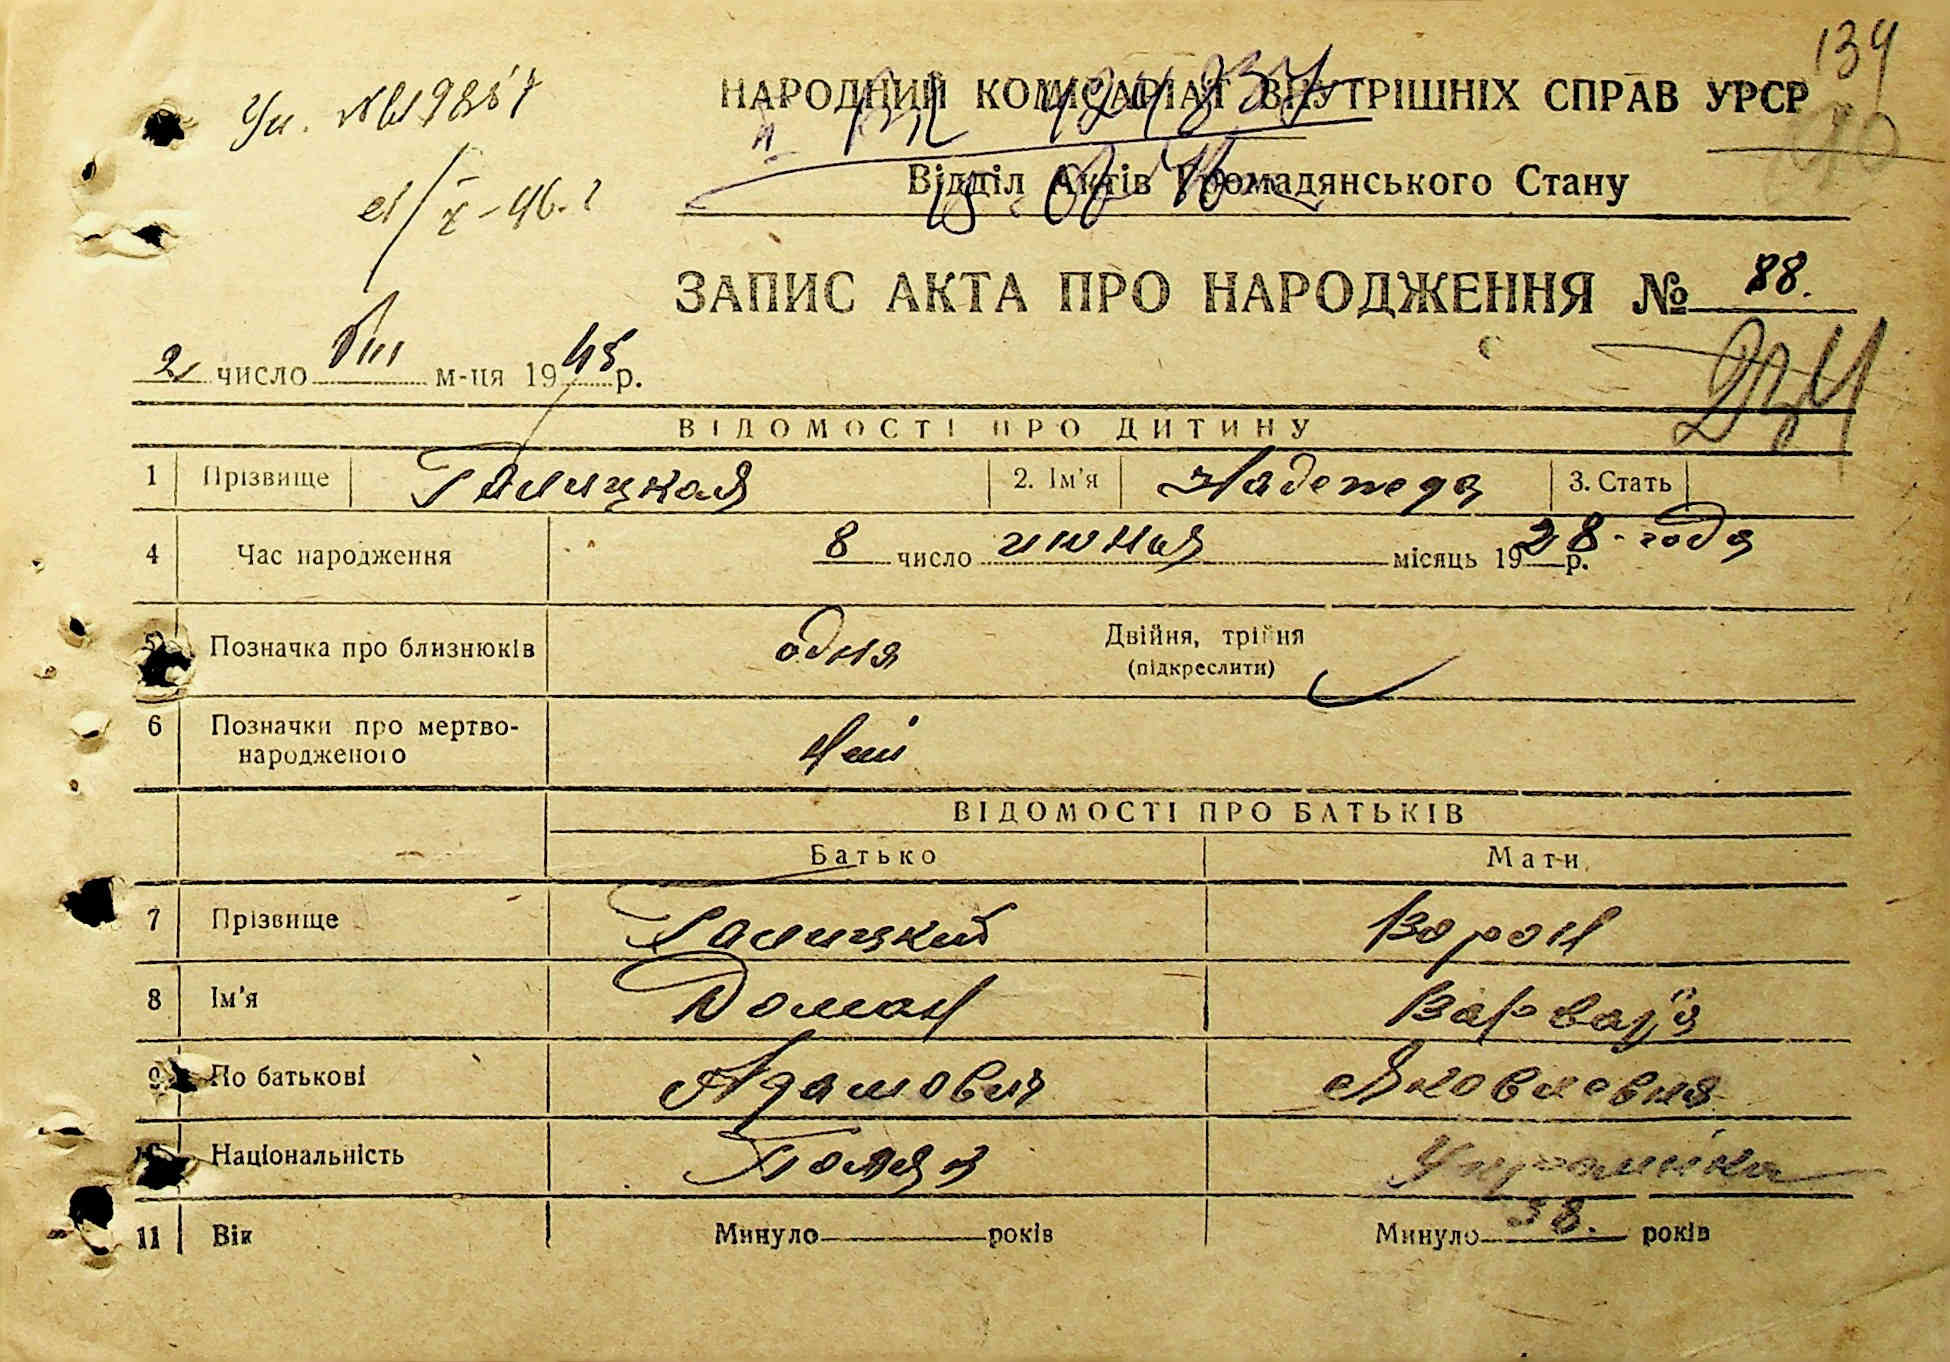 134
НАРОДНИЙ КОМІСАРІАТ ВНУТРІШНІХ СПРАВ УРСР
Відділ Актів Громадянського Стану
ЗАПИС АКТА ПРО НАРОДЖЕННЯ № 88.
21 число VIII м-ця 1945 р.
ВІДОМОСТІ ПРО ДИТИНУ
1 Прізвище Галицкая 2. Ім'я Надежда 3. Стать
4 Час народження 8 число июня місяць 1928 р. года
5 Позначка про близнюків одня Двійня, трійня
(підкреслити)
6 Позначки про мертво-
народженого Ні
ВІДОМОСТІ ПРО БАТЬКІВ
Батько Мати
7 Прізвище Галицкий Ворон
8 Ім'я Доман Варвара
9 По батькові Адамович Яковлевна
10 Національність Поляк Українка
11 Вік Минуло років Минуло 38. років